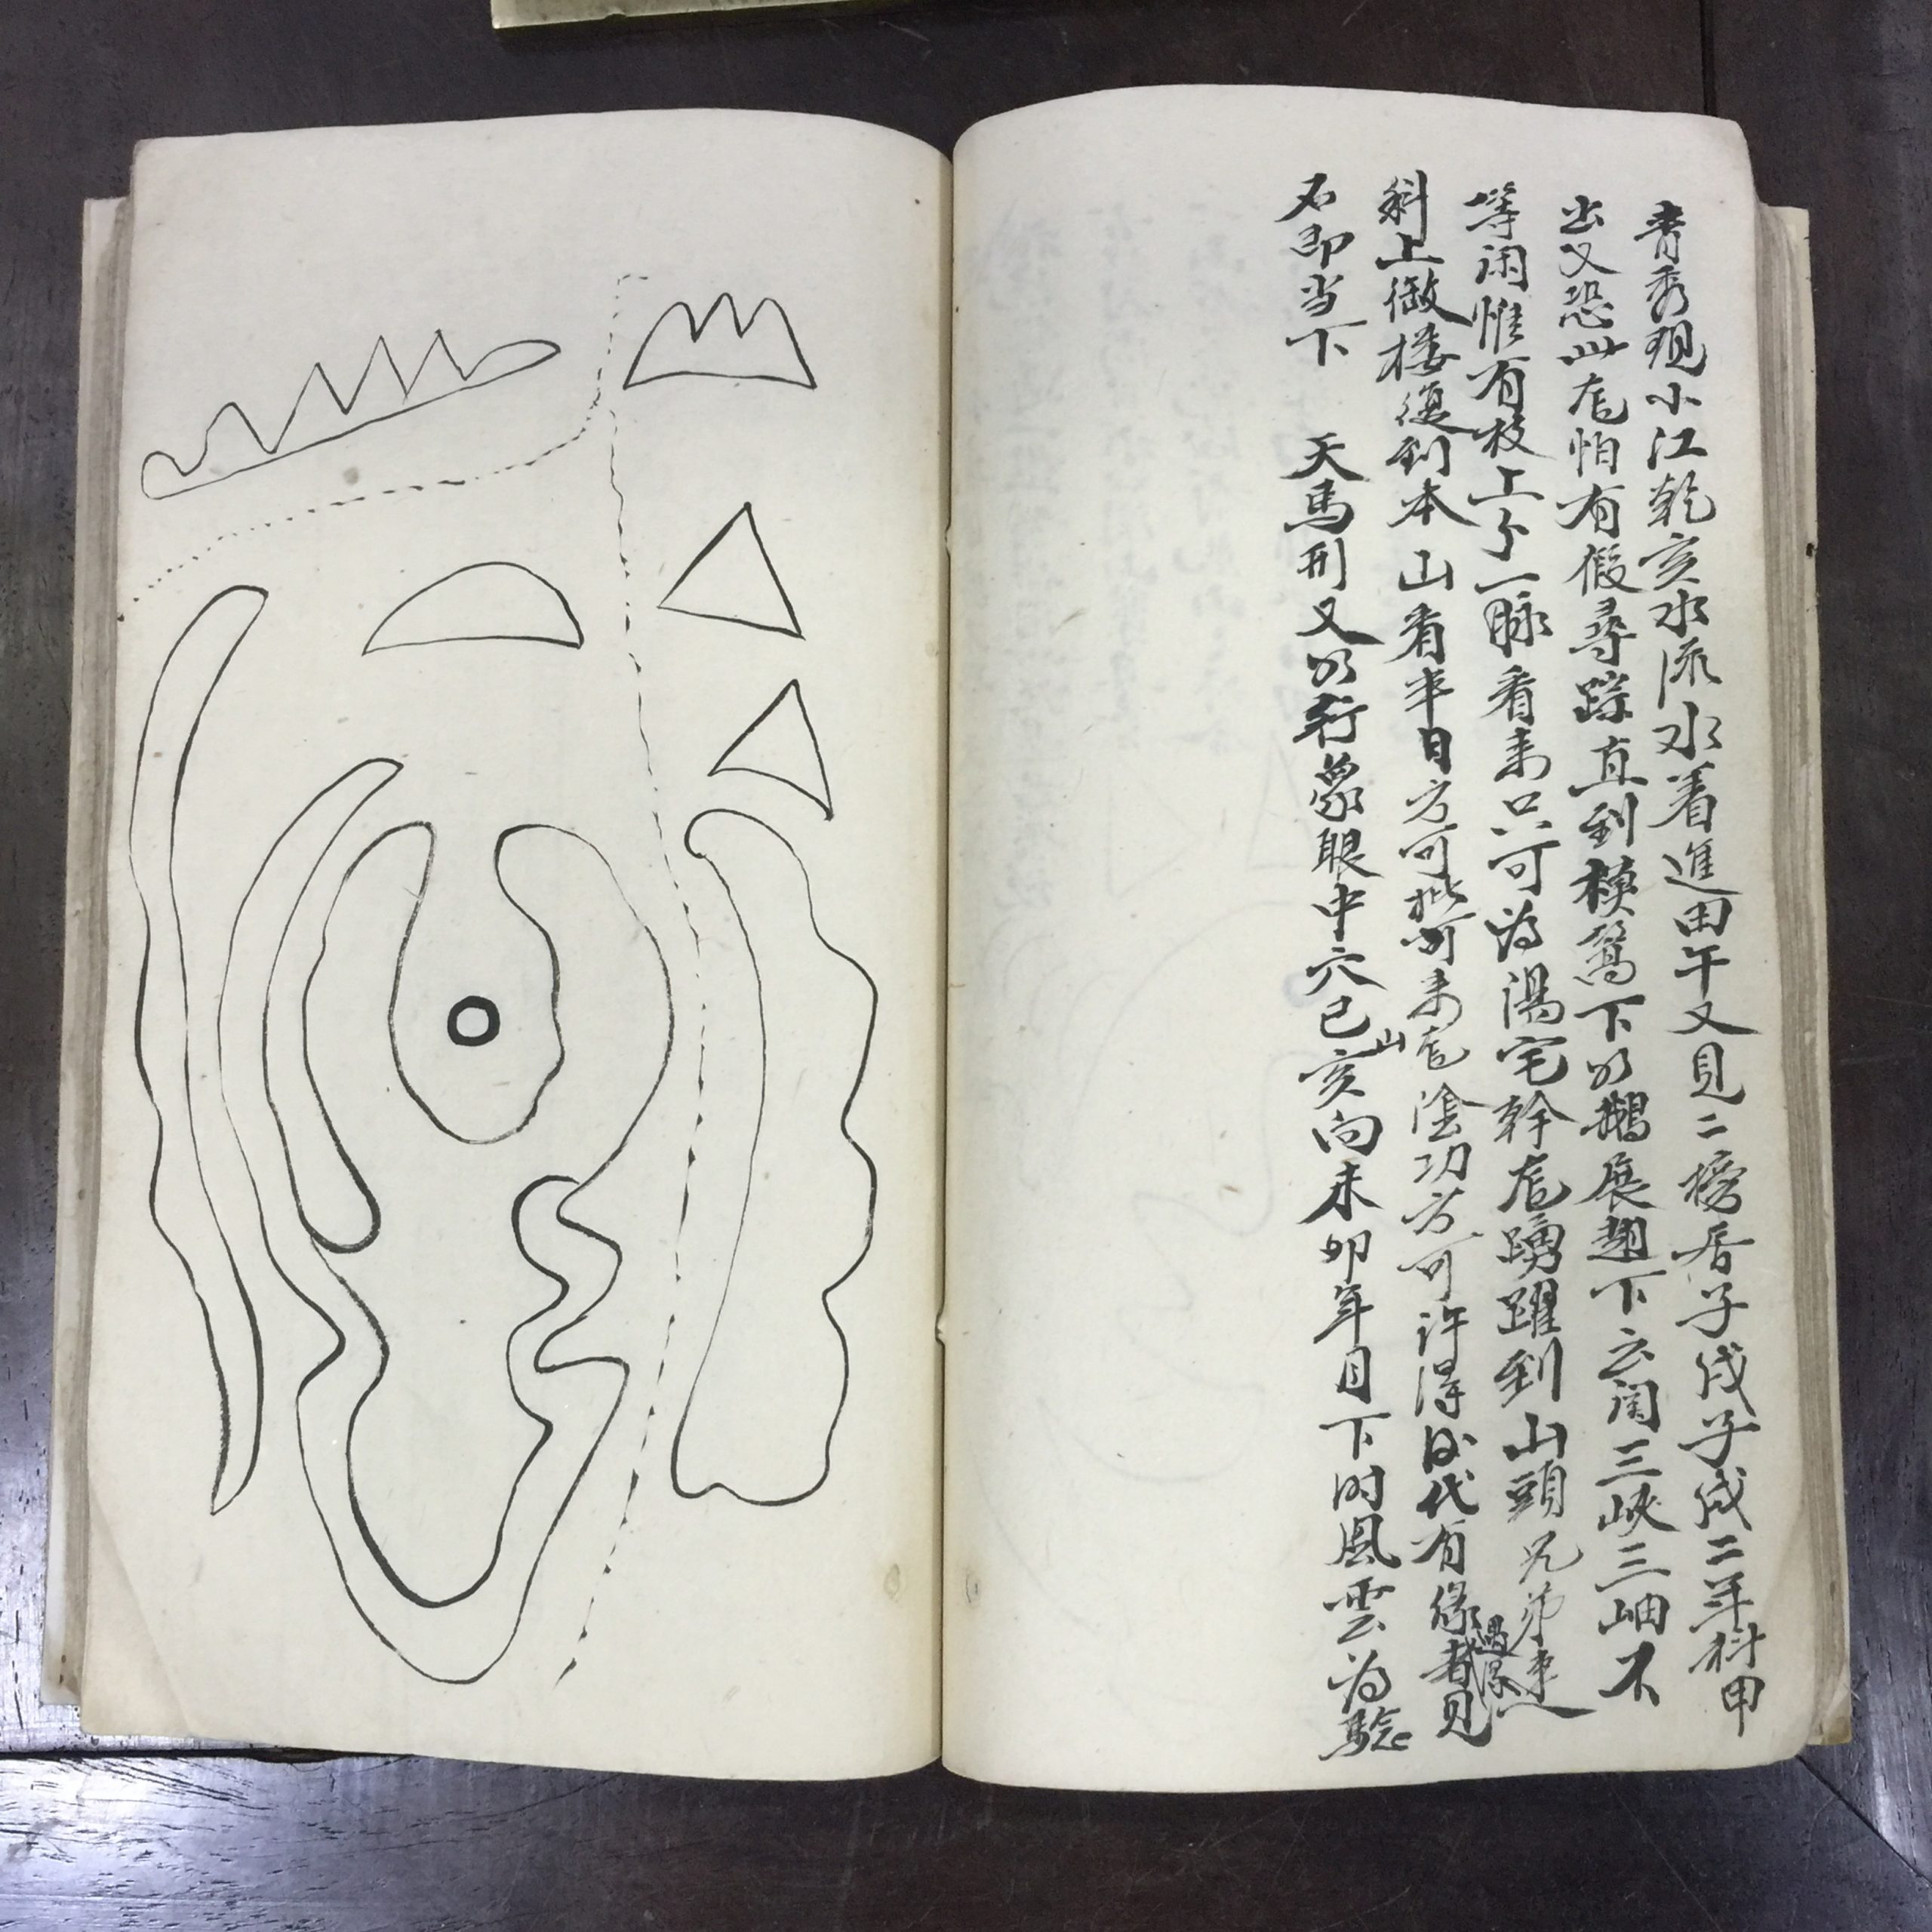 青秀現小江乾亥水流水着進田午又見二榜香子戌子戌二年科甲
出又恐此龙怕有假尋踪直到橫篙下仍鵝展翅下云闹三峽三岫不
等闲惟有枝上一脉看来只可為陽宅幹龙踴躍到山頭兄弟
科上做楼復到本山看半日方可 可来龙陰功方可许得 代有缘者見
不即当下 天馬刑又 行象眼中穴已山亥向未卯年月下时風雲為驗